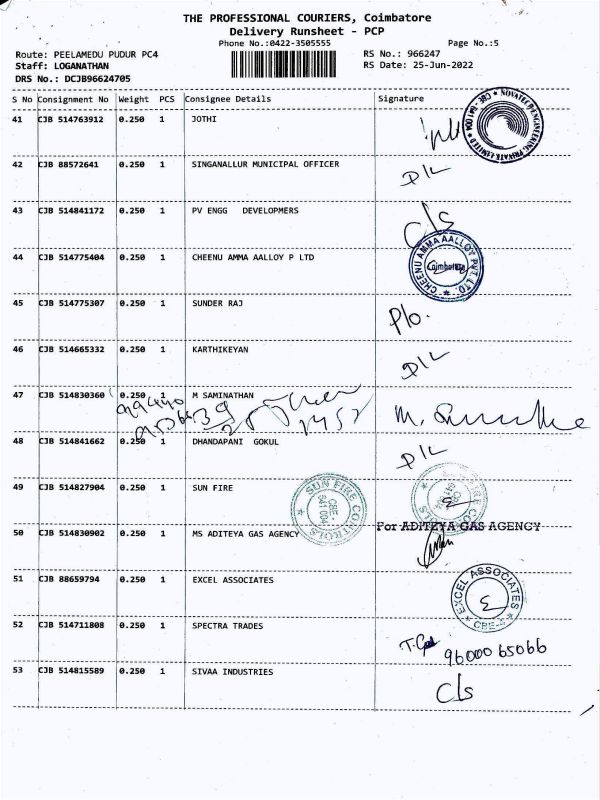 THE PROFESSIONAL COURIERS, Coimbatore
Delivery Runsheet - PCP
Phone No.:0422-3505555 Page No.:5
Route: PEELAMEDU PUDUR PC4 RS No.: 966247
Staff: LOGANATHAN RS Date: 25-Jun-2022
DRS No.: DCJB96624705
S No Consignment No Weight PCS Consignee Details Signature
41 CJB 514763912 0.250 1 JOTHI
NOVATECH ENGINEERING PRIVATE LIMITED CBE-641 004
42 CJB 88572641 0.250 1 SINGANALLUR MUNICIPAL OFFICER D/L
43 CJB 514841172 0.250 1 PV ENGG DEVELOPMERS C/s
44 CJB 514775404 0.250 1 CHEENU AMMA AALLOY P LTD
CHEENU AMMA AALLOY PVT. LTD. Coimbatore
45 CJB 514775307 0.250 1 SUNDER RAJ P/o.
46 CJB 514665332 0.250 1 KARTHIKEYAN D/L
47 CJB 514830360 0.250 1 M SAMINATHAN
48 CJB 514841662 0.250 1 DHANDAPANI GOKUL D/L
49 CJB 514827904 0.250 1 SUN FIRE
SUN FIRE CONTROLS CBE 641 004
50 CJB 514830902 0.250 1 MS ADITEYA GAS AGENCY For ADITEYA GAS AGENCY
51 CJB 88659794 0.250 1 EXCEL ASSOCIATES
EXCEL ASSOCIATES CBE-4
52 CJB 514711808 0.250 1 SPECTRA TRADES
9600065066
53 CJB 514815589 0.250 1 SIVAA INDUSTRIES C/s